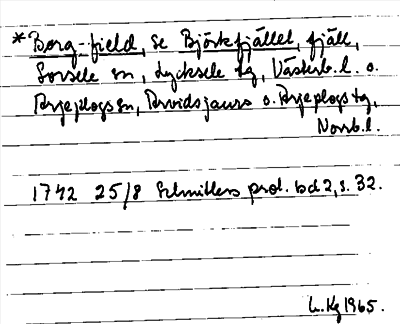 *Borg-field, se Björkfjället, fjäll,
Sorsele sn, Lycksele tg, Västerb. l. o.
Arjeplogs sn, Arvidsjaurs o. Arjeplogs tg,
Norrb. l.
1742 25/8 Schnitlers prot. bd 2, s. 32.
L. Kg 1965.